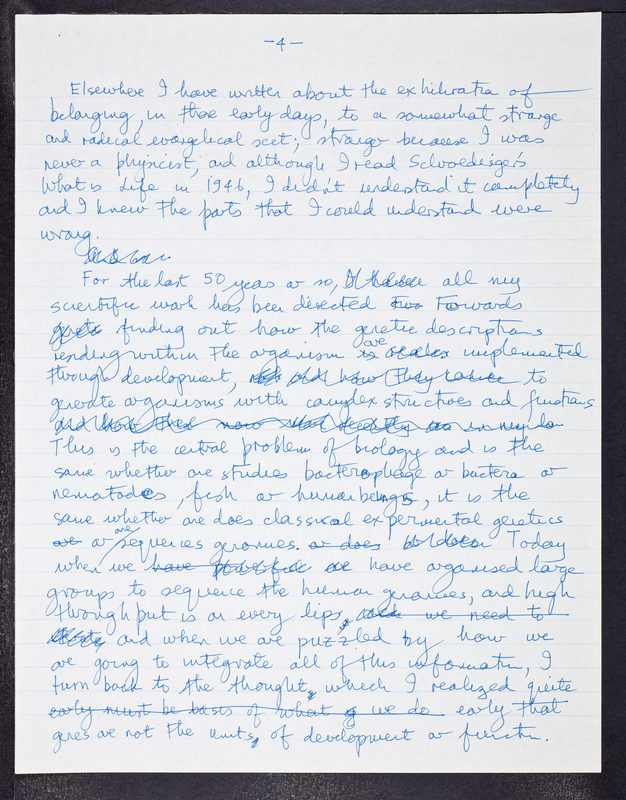 -4-
Elsewhere I have written about the exhileration of
belonging, in those early days, to a somewhat strange
and radical evangelical sect; strange because I was
never a physicist, and although I read Schroedeiger's
What is Life in 1946, I didn't understand it completely
and I knew the parts that I could understand were
wrong.
For the last 50 years or so, all my
scientific work has been directed two towards
finding out how the genetic descriptions
residing within the organism is are implemented
through development, and how they to
generate organisms with complex structures and functions
and how
This is the central problem of biology and is the
same whether one studies bacteriophage or bacteria or
nematodes, fish or human beings, it is the
same whether one does classical experimental genetics
or or one sequences genomes. or does Today
when we have powerful we have organised large
groups to sequence the human genomes, and high
throughput is on every lips, and we need to
and when we are puzzled by how we
are going to integrate all of this information, I
turn back to the thought, which I realized quite
early must be basis of what we do early that
genes are not the units, of development or function.